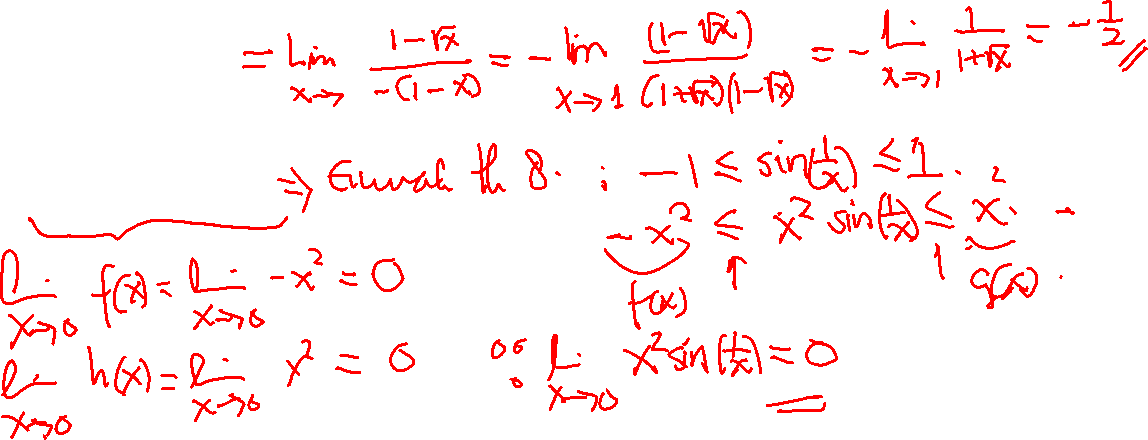 = lim x→ (1-√x)/(-(1-x)) = -lim x→1 (1-√x)/((1+√x)(1-√x)) = -lim x→1 1/(1+√x) = -1/2 //
⇒ th 8. ; -1 ≤ sin(1/x) ≤ 1.
-x² ≤ x² sin(1/x) ≤ x².
f(x) ↑ 1 g(x).
lim x→0 f(x) = lim x→0 -x² = 0
lim x→0 h(x) = lim x→0 x² = 0 ∴ lim x→0 x² sin(1/x) = 0